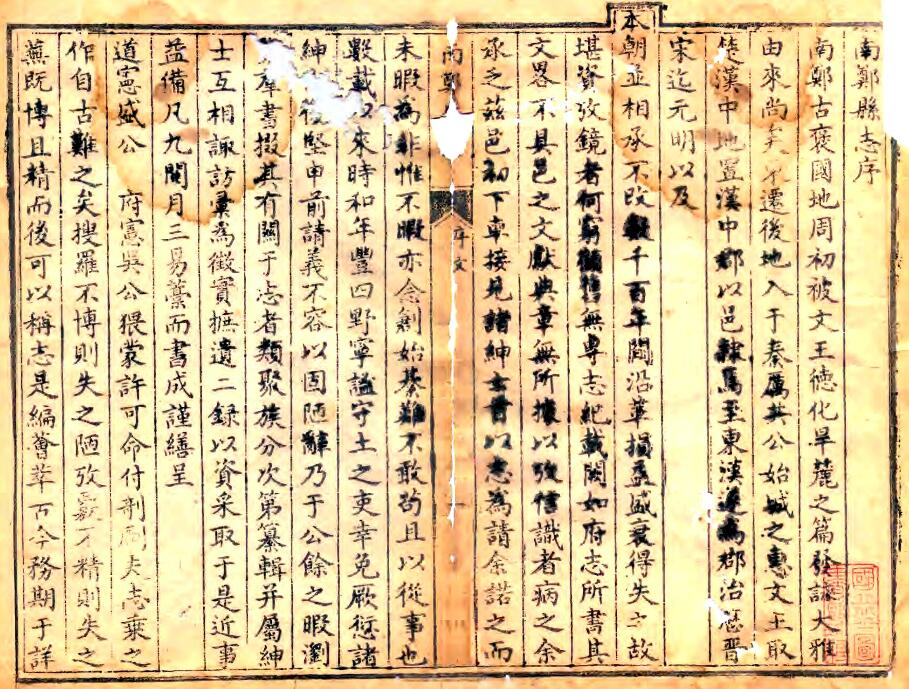 南鄭縣志序
南鄭古褒國地周初被文王德化旱麓之篇發詠大雅
由來尚矣東遷後地入于秦厲共公始城之惠文王取
楚漢中地置漢中郡以邑隸焉至東漢遂為郡治歷晉
宋迄元明以及
本朝並相承不改數千百年間沿革損益盛衰得失之故
堪資攷鏡者何窮顧舊無專志紀載闕如府志所書其
文畧不具邑之文獻典章無所據以攷信識者病之余
承乏茲邑初下車接見諸紳士首以志為請余諾之而
南鄭
序文
一
未暇為非惟不暇亦念創始綦難不敢苟且以從事也
數載以來時和年豐四野寧謐守土之吏幸免厥愆諸
紳復堅申前請義不容以固陋辭乃于公餘之暇瀏
羣書掇其有關于志者類聚族分次第纂輯并屬紳
士互相諏訪彙為徵實摭遺二錄以資采取于是近事
益備凡九閱月三易藁而書成謹繕呈
道憲盛公 府憲吳公猥蒙許可命付剞劂夫志乘之
作自古難之矣搜羅不博則失之陋攷覈不精則失之
蕪既博且精而後可以稱志是編薈萃古今務期于詳